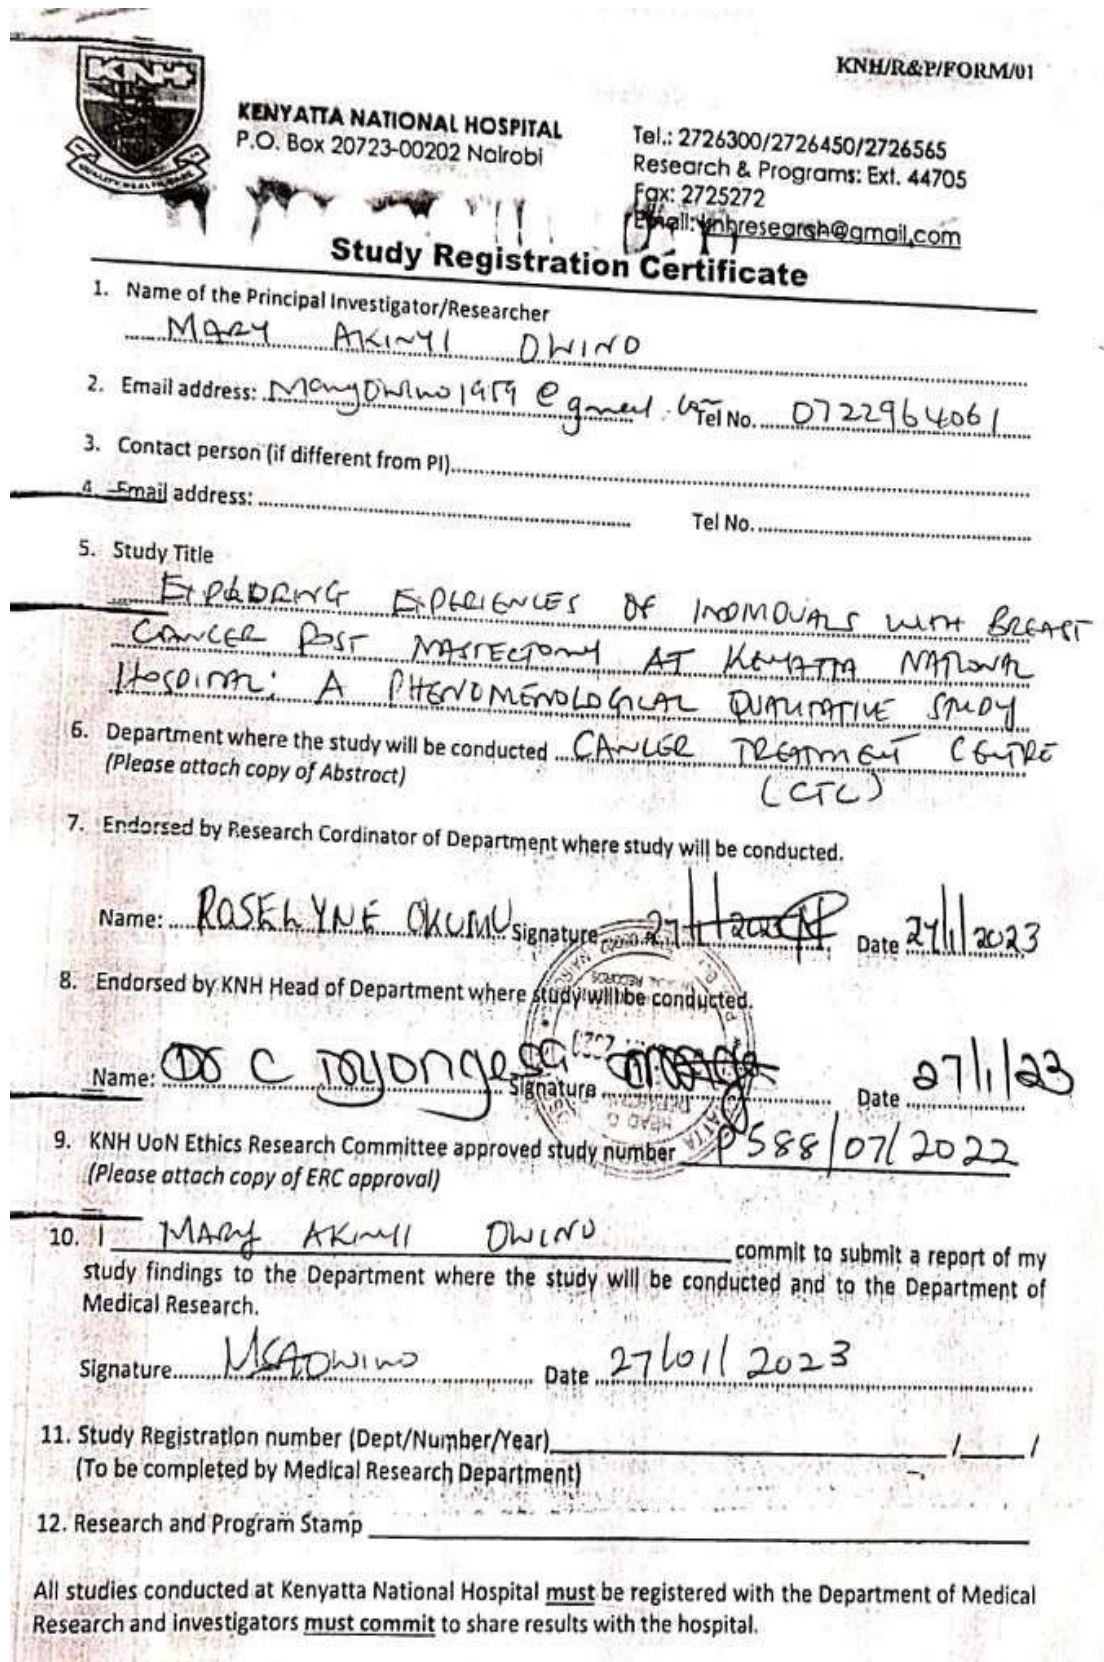 KNH
QUALITY HEALTH CARE
KNH/R&P/FORM/01
KENYATTA NATIONAL HOSPITAL
P.O. Box 20723-00202 Nairobi
Tel.: 2726300/2726450/2726565
Research & Programs: Ext. 44705
Fax: 2725272
Email: knhresearch@gmail.com
Study Registration Certificate
1. Name of the Principal Investigator/Researcher
MARY AKINYI OWINO
2. Email address: MaryOwino1959@gmail.com Tel No. 0722964061
3. Contact person (if different from PI)
4. Email address: Tel No.
5. Study Title
EXPLORING EXPERIENCES OF INDIVIDUALS WITH BREAST
CANCER POST MASTECTOMY AT KENYATTA NATIONAL
HOSPITAL: A PHENOMENOLOGICAL QUALITATIVE STUDY
6. Department where the study will be conducted CANCER TREATMENT CENTRE
(Please attach copy of Abstract) (CTC)
7. Endorsed by Research Cordinator of Department where study will be conducted.
Name: ROSELYNE OKUMU Signature 27/1/2023 Date 27/1/2023
8. Endorsed by KNH Head of Department where study will be conducted.
Name: C Signature Date 27/1/23
9. KNH UoN Ethics Research Committee approved study number P588/07/2022
(Please attach copy of ERC approval)
10. I MARY AKINYI OWINO commit to submit a report of my
study findings to the Department where the study will be conducted and to the Department of
Medical Research.
Signature Date 27/01/2023
11. Study Registration number (Dept/Number/Year) / /
(To be completed by Medical Research Department)
12. Research and Program Stamp
All studies conducted at Kenyatta National Hospital must be registered with the Department of Medical
Research and investigators must commit to share results with the hospital.